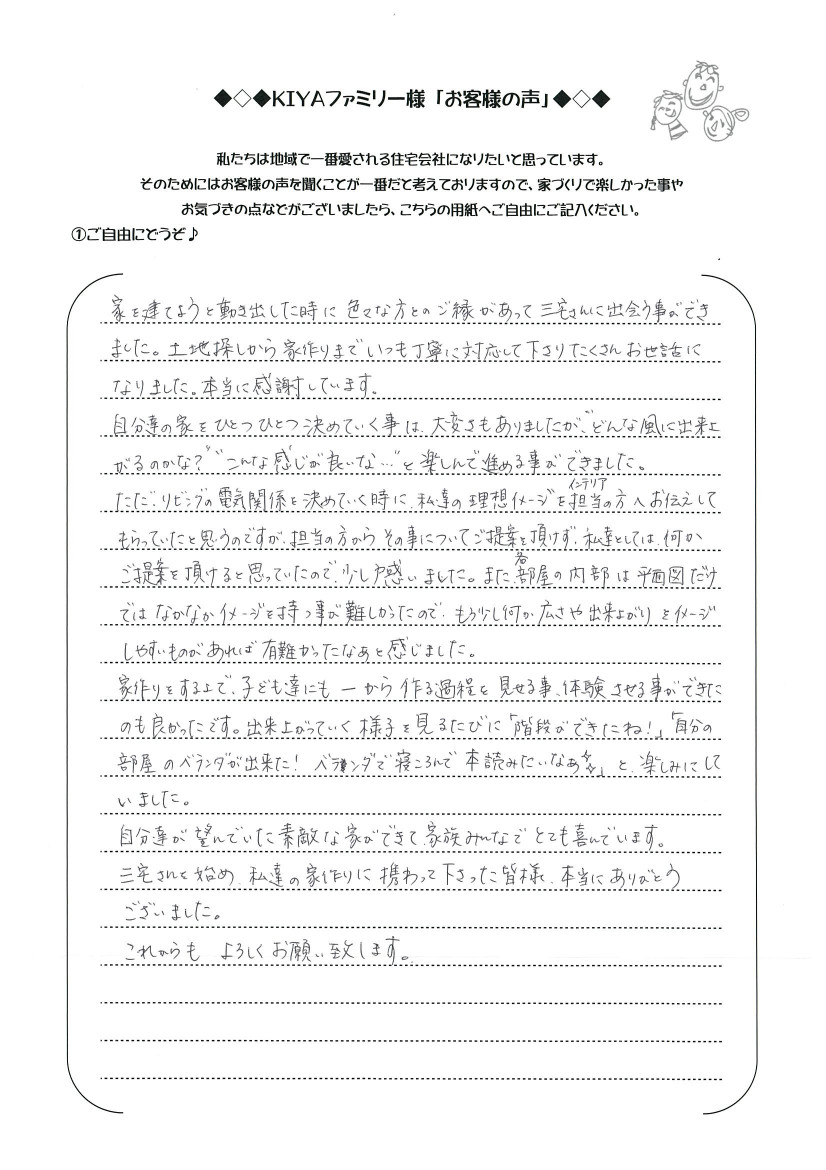 ◆◇◆KIYAファミリー様「お客様の声」◆◇◆
私たちは地域で一番愛される住宅会社になりたいと思っています。
そのためにはお客様の声を聞くことが一番だと考えておりますので、家づくりで楽しかった事や
お気づきの点などがございましたら、こちらの用紙へご自由にご記入ください。
①ご自由にどうぞ♪
家を建てようと動き出した時に 色々な方とのご縁があって 三宅さんに出会う事ができ
ました。土地探しから 家作りまで いつも丁寧に対応して下さりたくさん お世話に
なりました。本当に感謝しています。
自分達の家を ひとつひとつ 決めていく事は、大変さもありましたが、“どんな風に出来上
がるのかな?”“こんな感じが良いな…”と 楽しんで進める事ができました。
インテリア
ただ、リビングの電気関係を決めていく時に、私達の理想イメージを担当の方へお伝えして
もらっていたと思うのですが、担当の方から その事についてご提案を頂けず、私達としては、何か
ご提案を頂けると思っていたので、少し戸惑いました。また、各部屋の内部は平面図だけ
では なかなかイメージを持つ事が難しかったので、もう少し何か広さや出来上がりをイメージ
しやすいものがあれば 有難かったなぁと感じました。
家作りをする上で、子ども達にも 一から作る過程を 見せる事、体験させる事ができた
のも良かったです。出来上がっていく様子を見るたびに「階段ができたね!」「自分の
部屋のベランダが出来た! ベランダで寝ころんで 本読みたいなぁ☆☆」と、楽しみにして
いました。
自分達が望んでいた素敵な家ができて、家族みんなで とても喜んでいます。
三宅さんを始め、私達の家作りに 携わって下さった皆様、本当にありがとう
ございました。
これからも よろしくお願い致します。